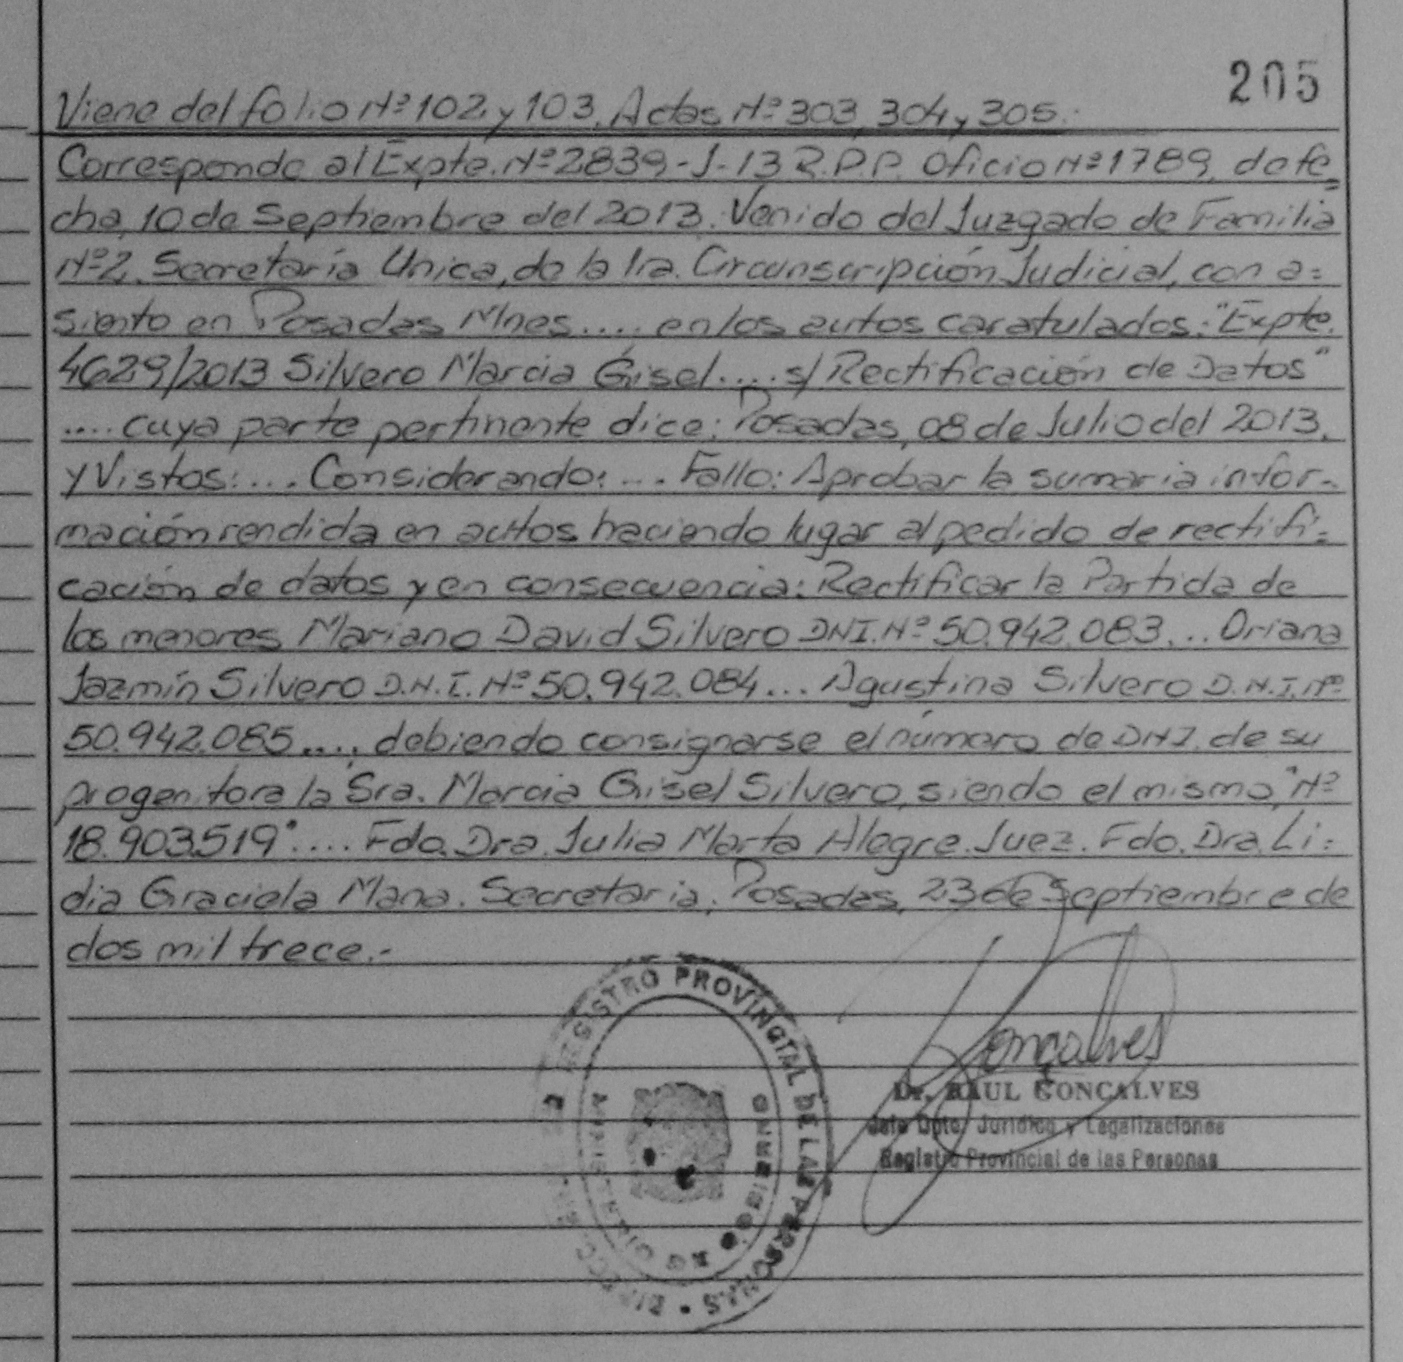 205
Viene del folio Nº 102 y 103, Actas Nº 303, 304 y 305.-
Corresponde al Expte. Nº 2839-J-13 R.P.P. Oficio Nº 1789, de fe=
cha, 10 de Septiembre del 2013. Venido del Juzgado de Familia
Nº 2, Secretaría Unica, de la 1ra. Circunscripción Judicial, con a=
siento en Posadas Mnes.... en los autos caratulados: "Expte.
4629/2013 Silvero Marcia Gisel.... s/ Rectificación de Datos"
.... cuya parte pertinente dice: Posadas, 08 de Julio del 2013.
y Vistos:.... Considerando:.... Fallo: Aprobar la sumaria infor-
mación rendida en autos haciendo lugar al pedido de rectifi=
cación de datos y en consecuencia: Rectificar la Partida de
los menores Mariano David Silvero DNI. Nº 50.942.083... Oriana
Jazmín Silvero D.N.I. Nº 50.942.084... Agustina Silvero D.N.I. Nº
50.942.085...., debiendo consignarse el número de DNI. de su
progenitora la Sra. Marcia Gisel Silvero, siendo el mismo, "Nº
18.903.519".... Fdo. Dra. Julia Marta Alegre. Juez. Fdo. Dra. Li=
dia Graciela Mana. Secretaria. Posadas, 23 de Septiembre de
dos mil trece.-
REGISTRO PROVINCIAL DE LAS PERSONAS
MINISTERIO DE GOBIERNO
Gonçalves
Dr. RAUL GONCALVES
Jefe Dpto. Jurídico y Legalizaciones
Registro Provincial de las Personas